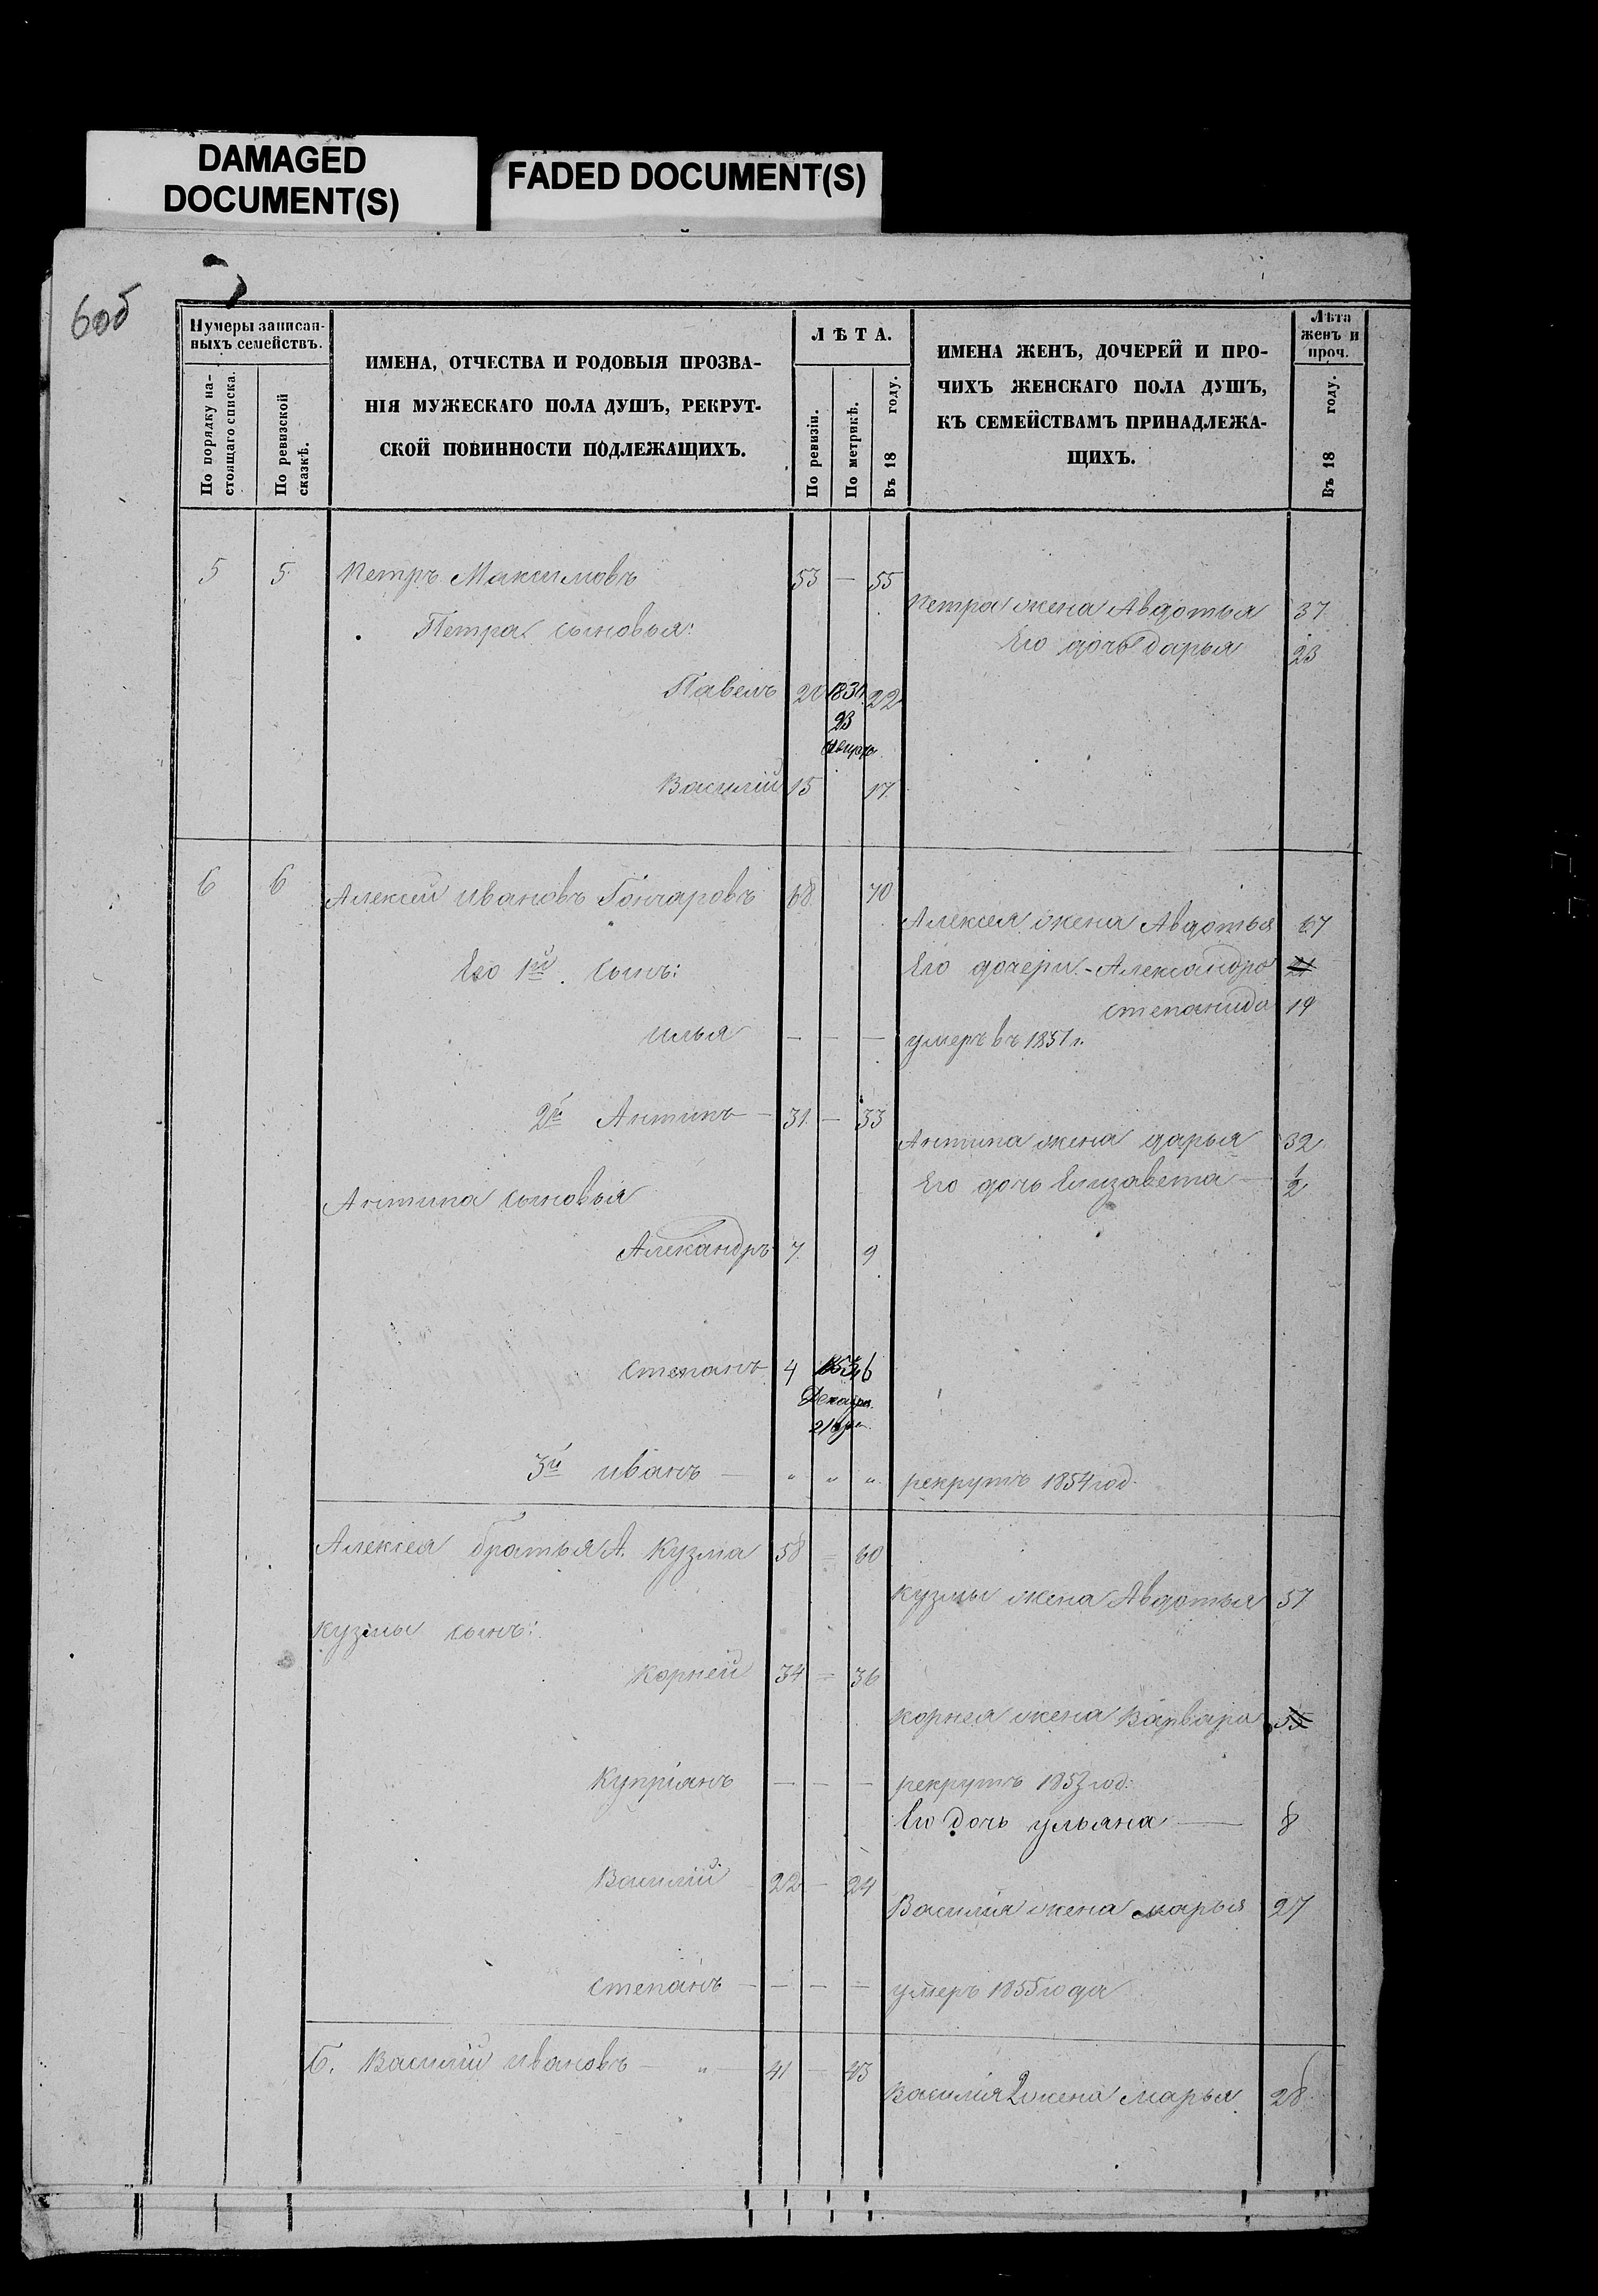 DAMAGED
DOCUMENT(S)
FADED DOCUMENT(S)
6об
Нумеры записан-
ныхъ семействъ.
По порядку на-
стоящаго списка.
По ревизской
сказкѣ.
ИМЕНА, ОТЧЕСТВА И РОДОВЫЯ ПРОЗВА-
НІЯ МУЖЕСКАГО ПОЛА ДУШЪ, РЕКРУТ-
СКОЙ ПОВИННОСТИ ПОДЛЕЖАЩИХЪ.
ЛѢТА.
По ревизіи.
По метрикѣ.
Въ 18 году.
ИМЕНА ЖЕНЪ, ДОЧЕРЕЙ И ПРО-
ЧИХЪ ЖЕНСКАГО ПОЛА ДУШЪ,
КЪ СЕМЕЙСТВАМЪ ПРИНАДЛЕЖА-
ЩИХЪ.
Лѣта
женъ и
проч.
Въ 18 году.
5 5 Петръ Максимовъ 53 — 55
Петра жена Авдотья 37
Петра сыновья:
Его дочь Дарья 23
Павелъ 20 1831 22
23
Василій 15 17
6 6 Алексей Ивановъ Гончаровъ 68 70
Алексея жена Авдотья 67
Его 1й сынъ:
Его дочери - Александра 21
Степанида 19
Илья — — — умеръ въ 1851 г.
2й Антипъ — 31 — 33
Антипа жена Дарья 32
Его дочь Елизавета — 1/2
Антипа сыновья
Александръ 7 9
Степанъ 4 6
3й Иванъ — " " " рекрутъ 1854 год.
Алексея братья А. Кузма 58 = 60
Кузмы жена Авдотья 57
Кузмы сынъ:
Корней 34 = 36
Корнея жена Варвара 35
Купріянъ — — — рекрутъ 1853 год:
Его дочь Ульяна — 8
Василій 22 — 24
Василія жена Марья 27
Степанъ — — — — умеръ 1855 года
Б. Василій Ивановъ — " — 41 — 43
Василія 2 жена Марья 28